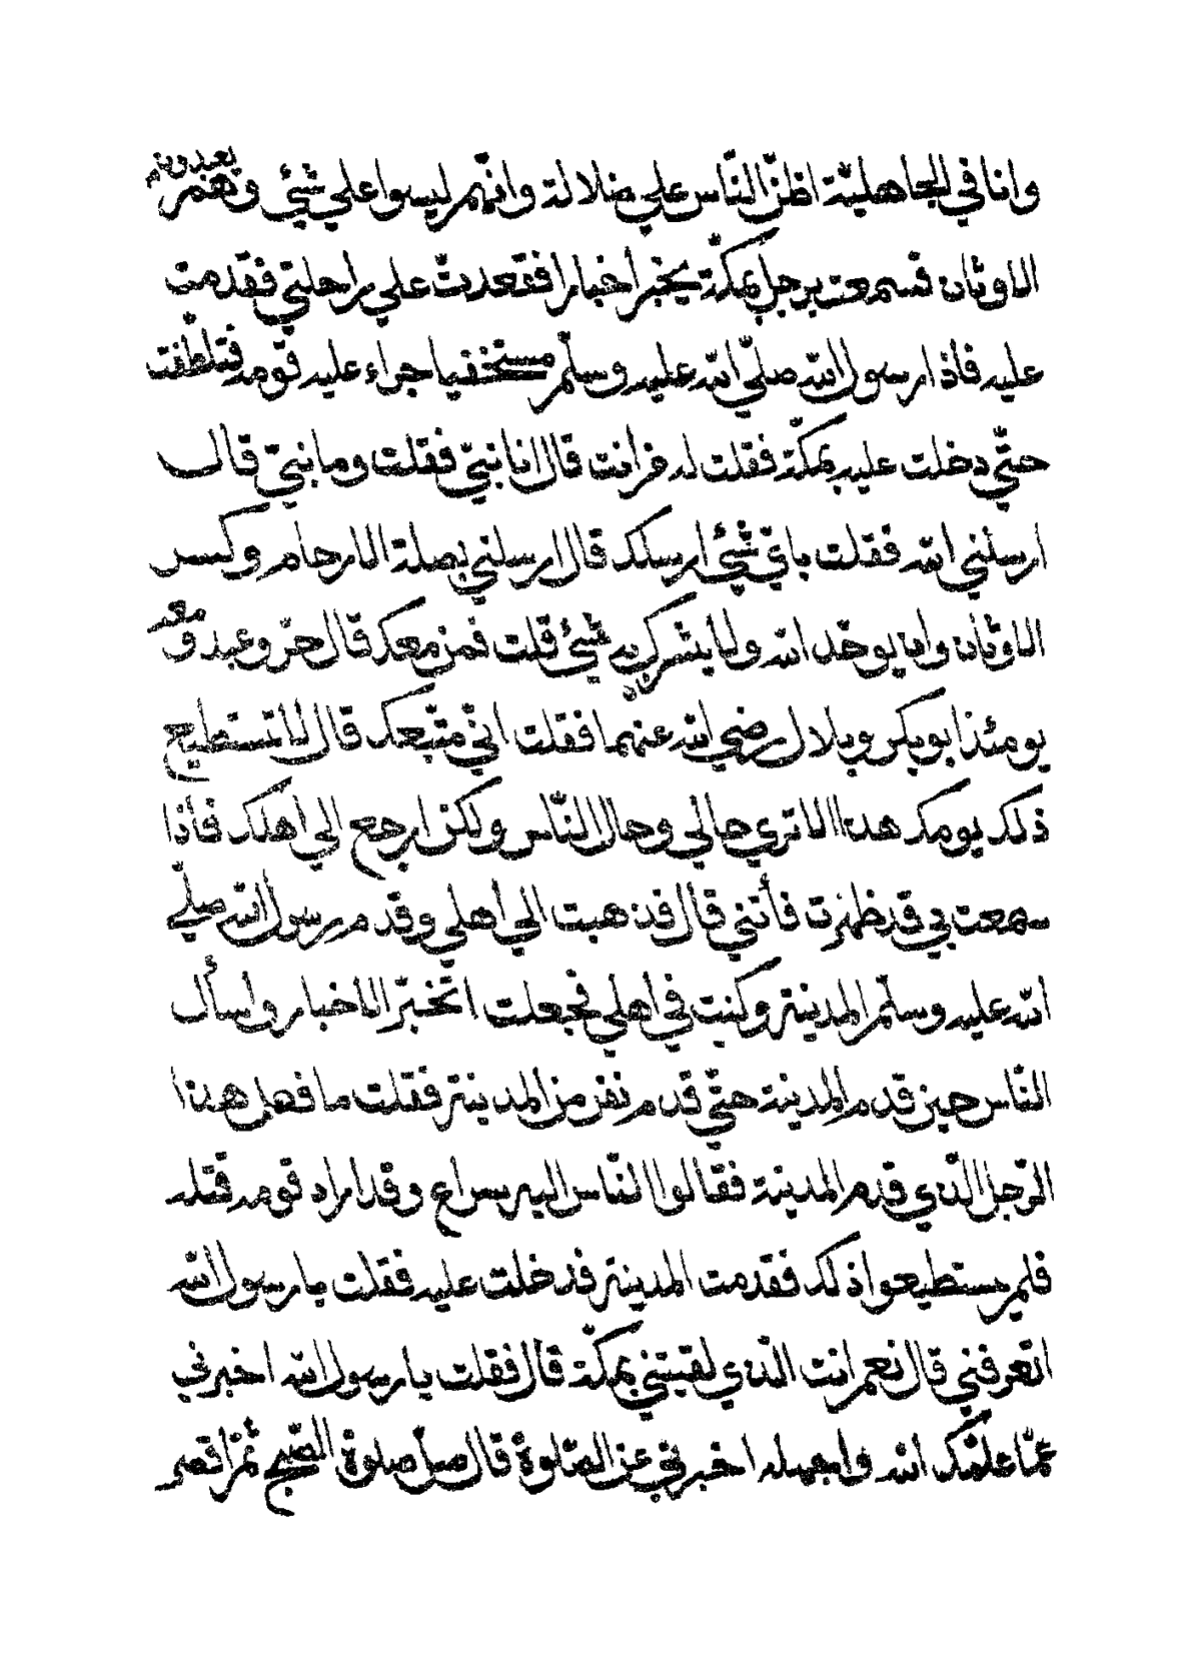 وانا في الجاهليّة اظنّ النّاس علي ضلالة وانّهم ليسوا علي شئي وهم يعبدون
الاوثان فسمعت برجل بمكّة يخبر أخبارا فقعدت علي راحلتي فقدمت
عليه فاذا رسول الله صلّي الله عليه وسلّم مستخفيا جراء عليه قومه فتلطّفت
حتّي دخلت عليه بمكّة فقلت له من انت قال انا نبيّ فقلت وما نبيّ قال
ارسلني الله فقلت باي شئي ارسلك قال ارسلني بصلة الارحام وكسر
الاوثان وان يوحّد الله ولا يشرك به شئي قلت فمن معك قال حرّ وعبد ومعه
يومئذ ابو بكر وبلال رضي الله عنهما فقلت انّي متّبعك قال لا تستطيع
ذلك يومك هذا الا تري حالي وحال النّاس ولكن ارجع الي اهلك فاذا
سمعت بي قد ظهرت فأتني قال فذهبت الي أهلي وقدم رسول الله صلّي
الله عليه وسلّم المدينة وكنت في اهلي فجعلت اتخبّر الاخبار واسأل
النّاس حين قدم المدينة حتّي قدم نفر من المدينة فقلت ما فعل هذا
الرّجل الّذي قدم المدينة فقالوا النّاس اليه سراع وقد اراد قومه قتله
فلم يستطيعوا ذلك فقدمت المدينة فدخلت عليه فقلت يا رسول الله
اتعرفني قال نعم انت الّذي لقيتني بمكّة قال فقلت يا رسول الله اخبرني
عمّا علّمك الله واجهله اخبرني عن الصّلوة قال صلّ صلوة الصّبح ثمّ اقصر